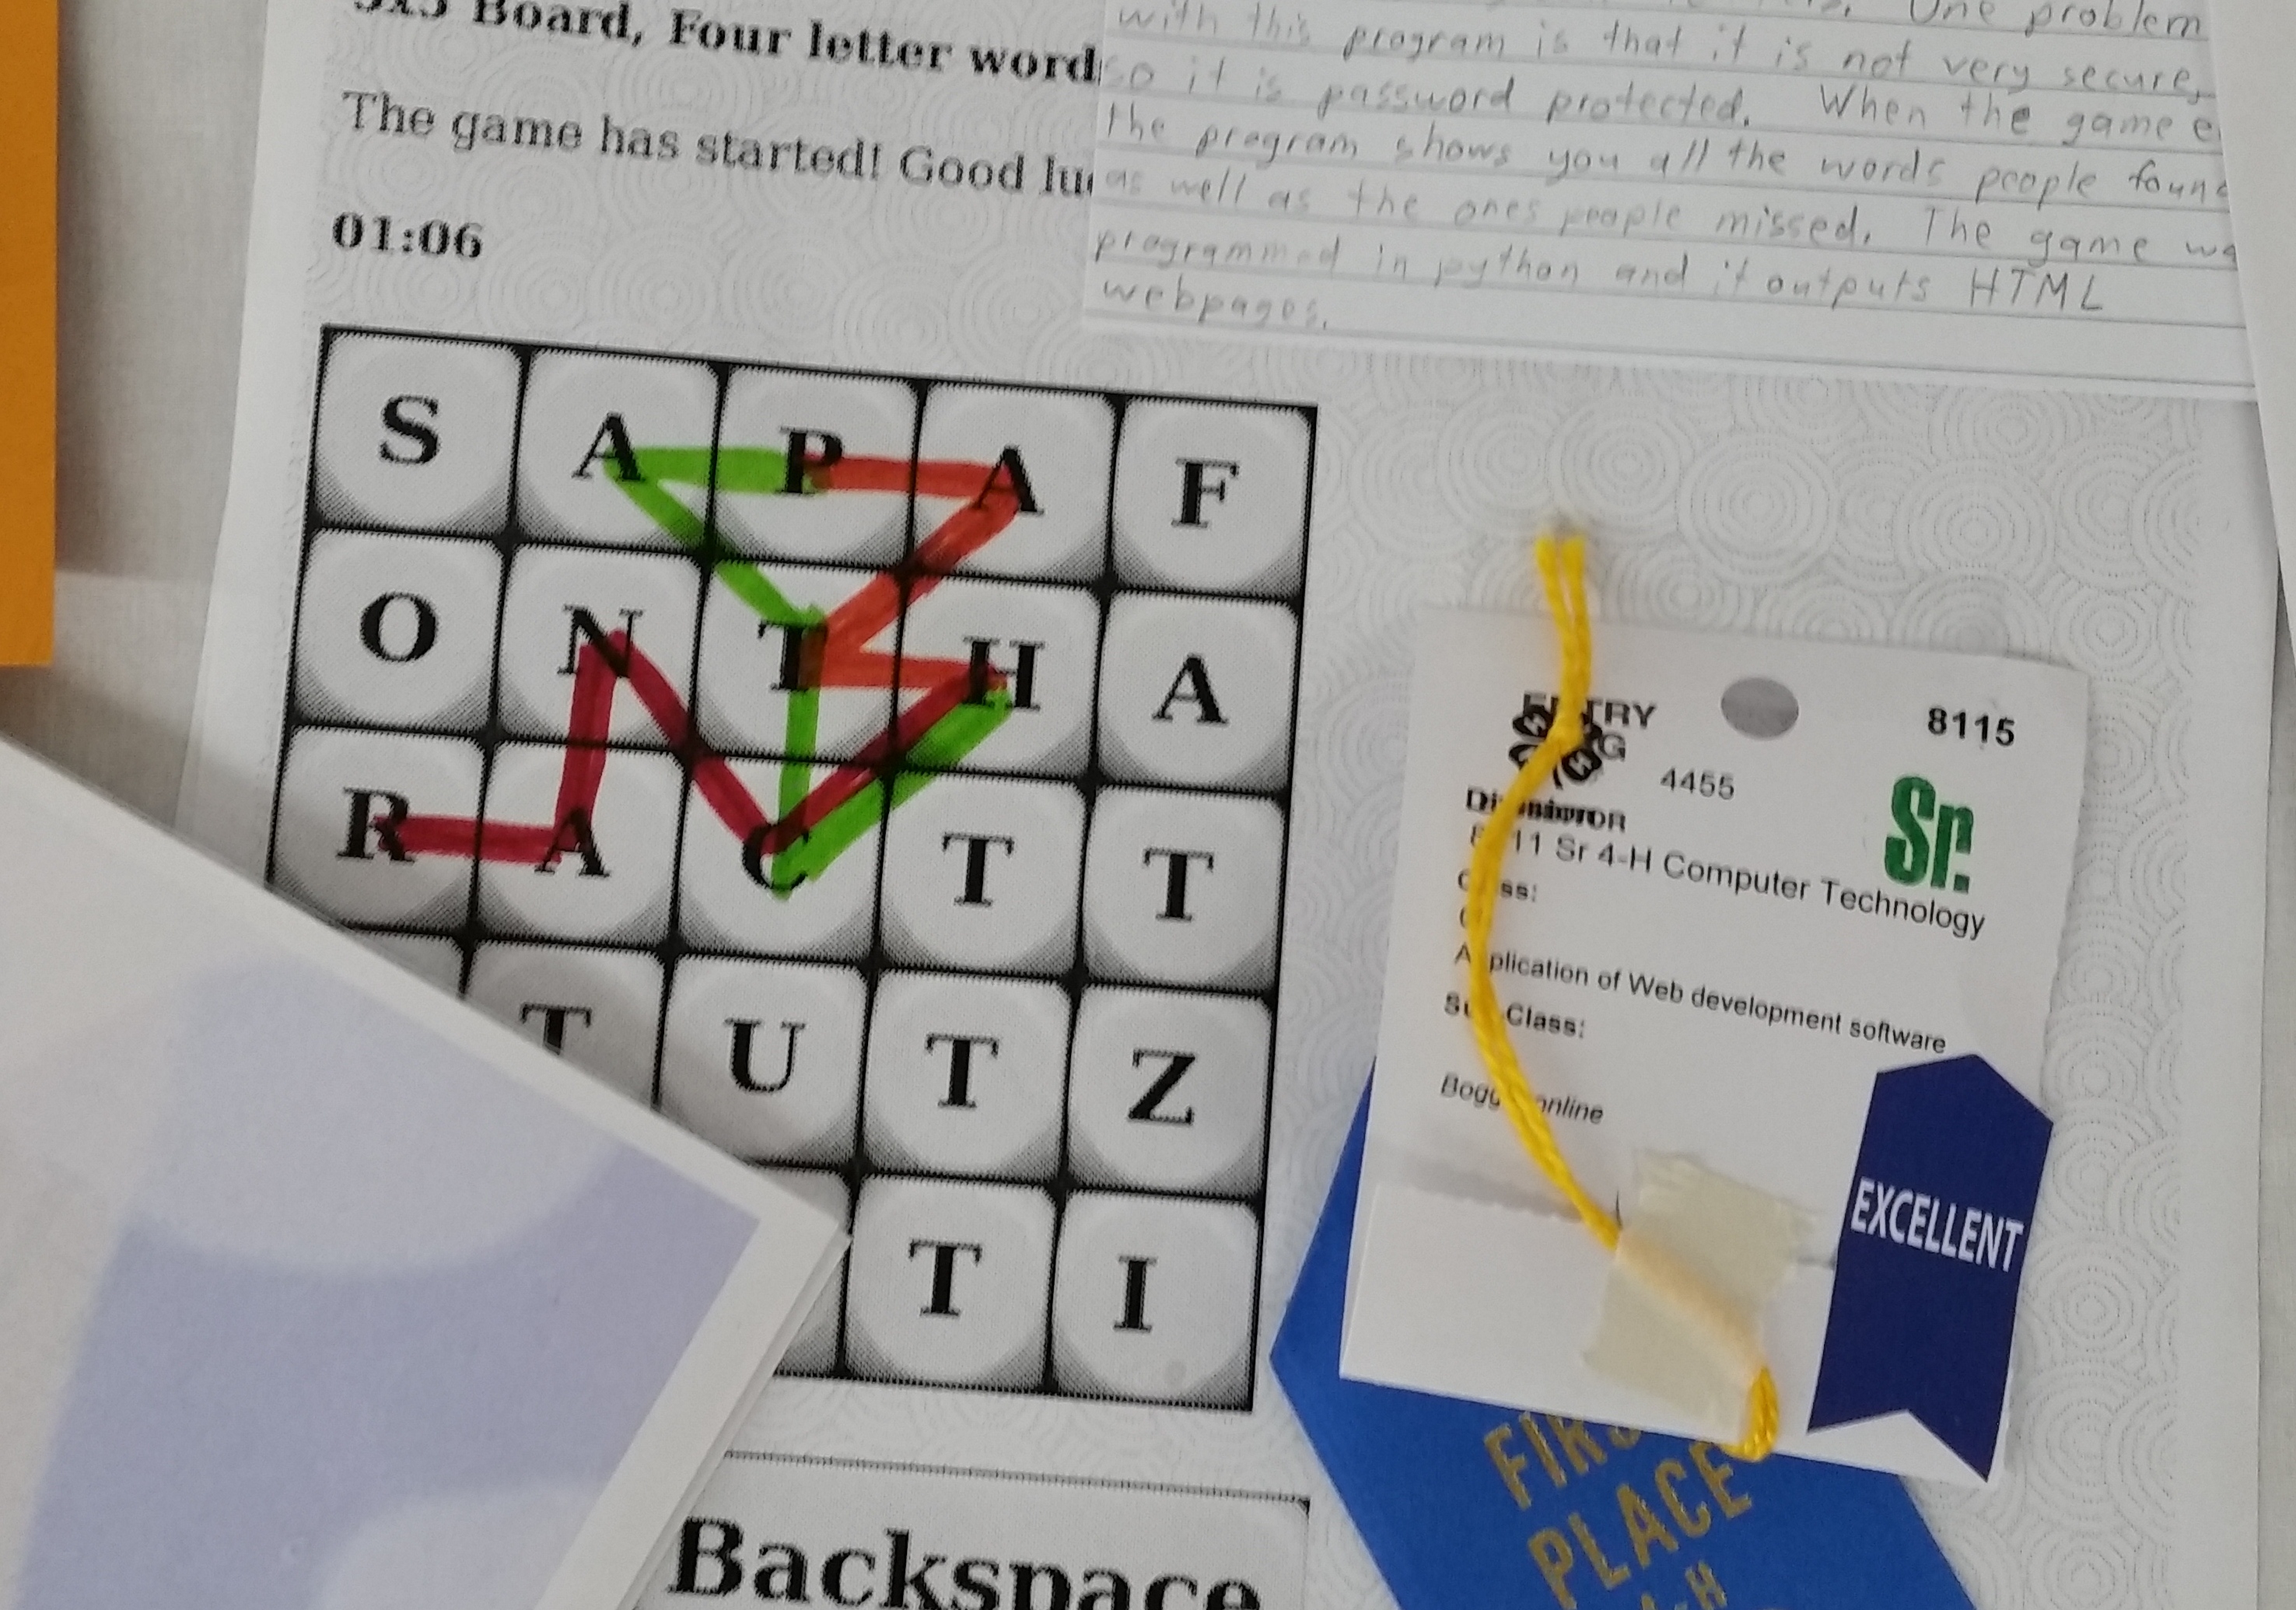 5x5 Board, Four letter word
The game has started! Good
01:06
One problem
with this program is that it is not very secure,
so it is password protected. When the game
the program shows you all the words people
as well as the ones people missed. The game
programmed in python and it outputs HTML
webpages.
S A P A F
O N T H A
R A C T T
T U T Z
T I
Backspace
ENTRY 8115
4455
Sr.
11 Sr 4-H Computer Technology
Application of Web development software
Class:
online
EXCELLENT
FIRST
PLACE